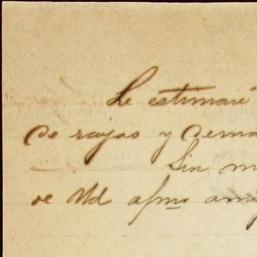 Le estimaré
de rayas y dema
Sin m
de Ud afmo ami